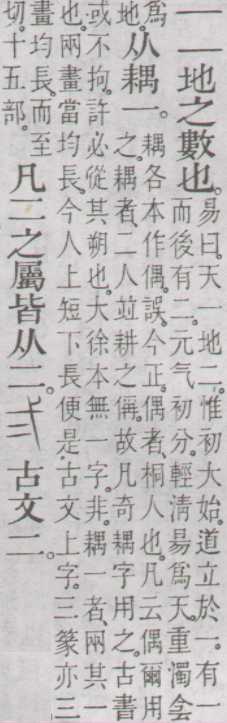 二 地之數也。
易曰。天一地二。惟初大始。道立於一。有一
而後有二。元气初分。輕清昜爲天。重濁侌
爲
地。
从耦一。
耦各本作偶。誤。今正。偶者、桐人也。凡云偶爾用
之。耦者、二人並耕之偁。故凡奇耦字用之。古書
或不拘。許必從其朔也。大徐本無一字。非。耦一者、兩其一
也。兩畫當均長。今人上短下長便是古文上字。三篆亦三
畫均長。而至
切。十五部。
凡二之屬皆从二。弍 古文二。